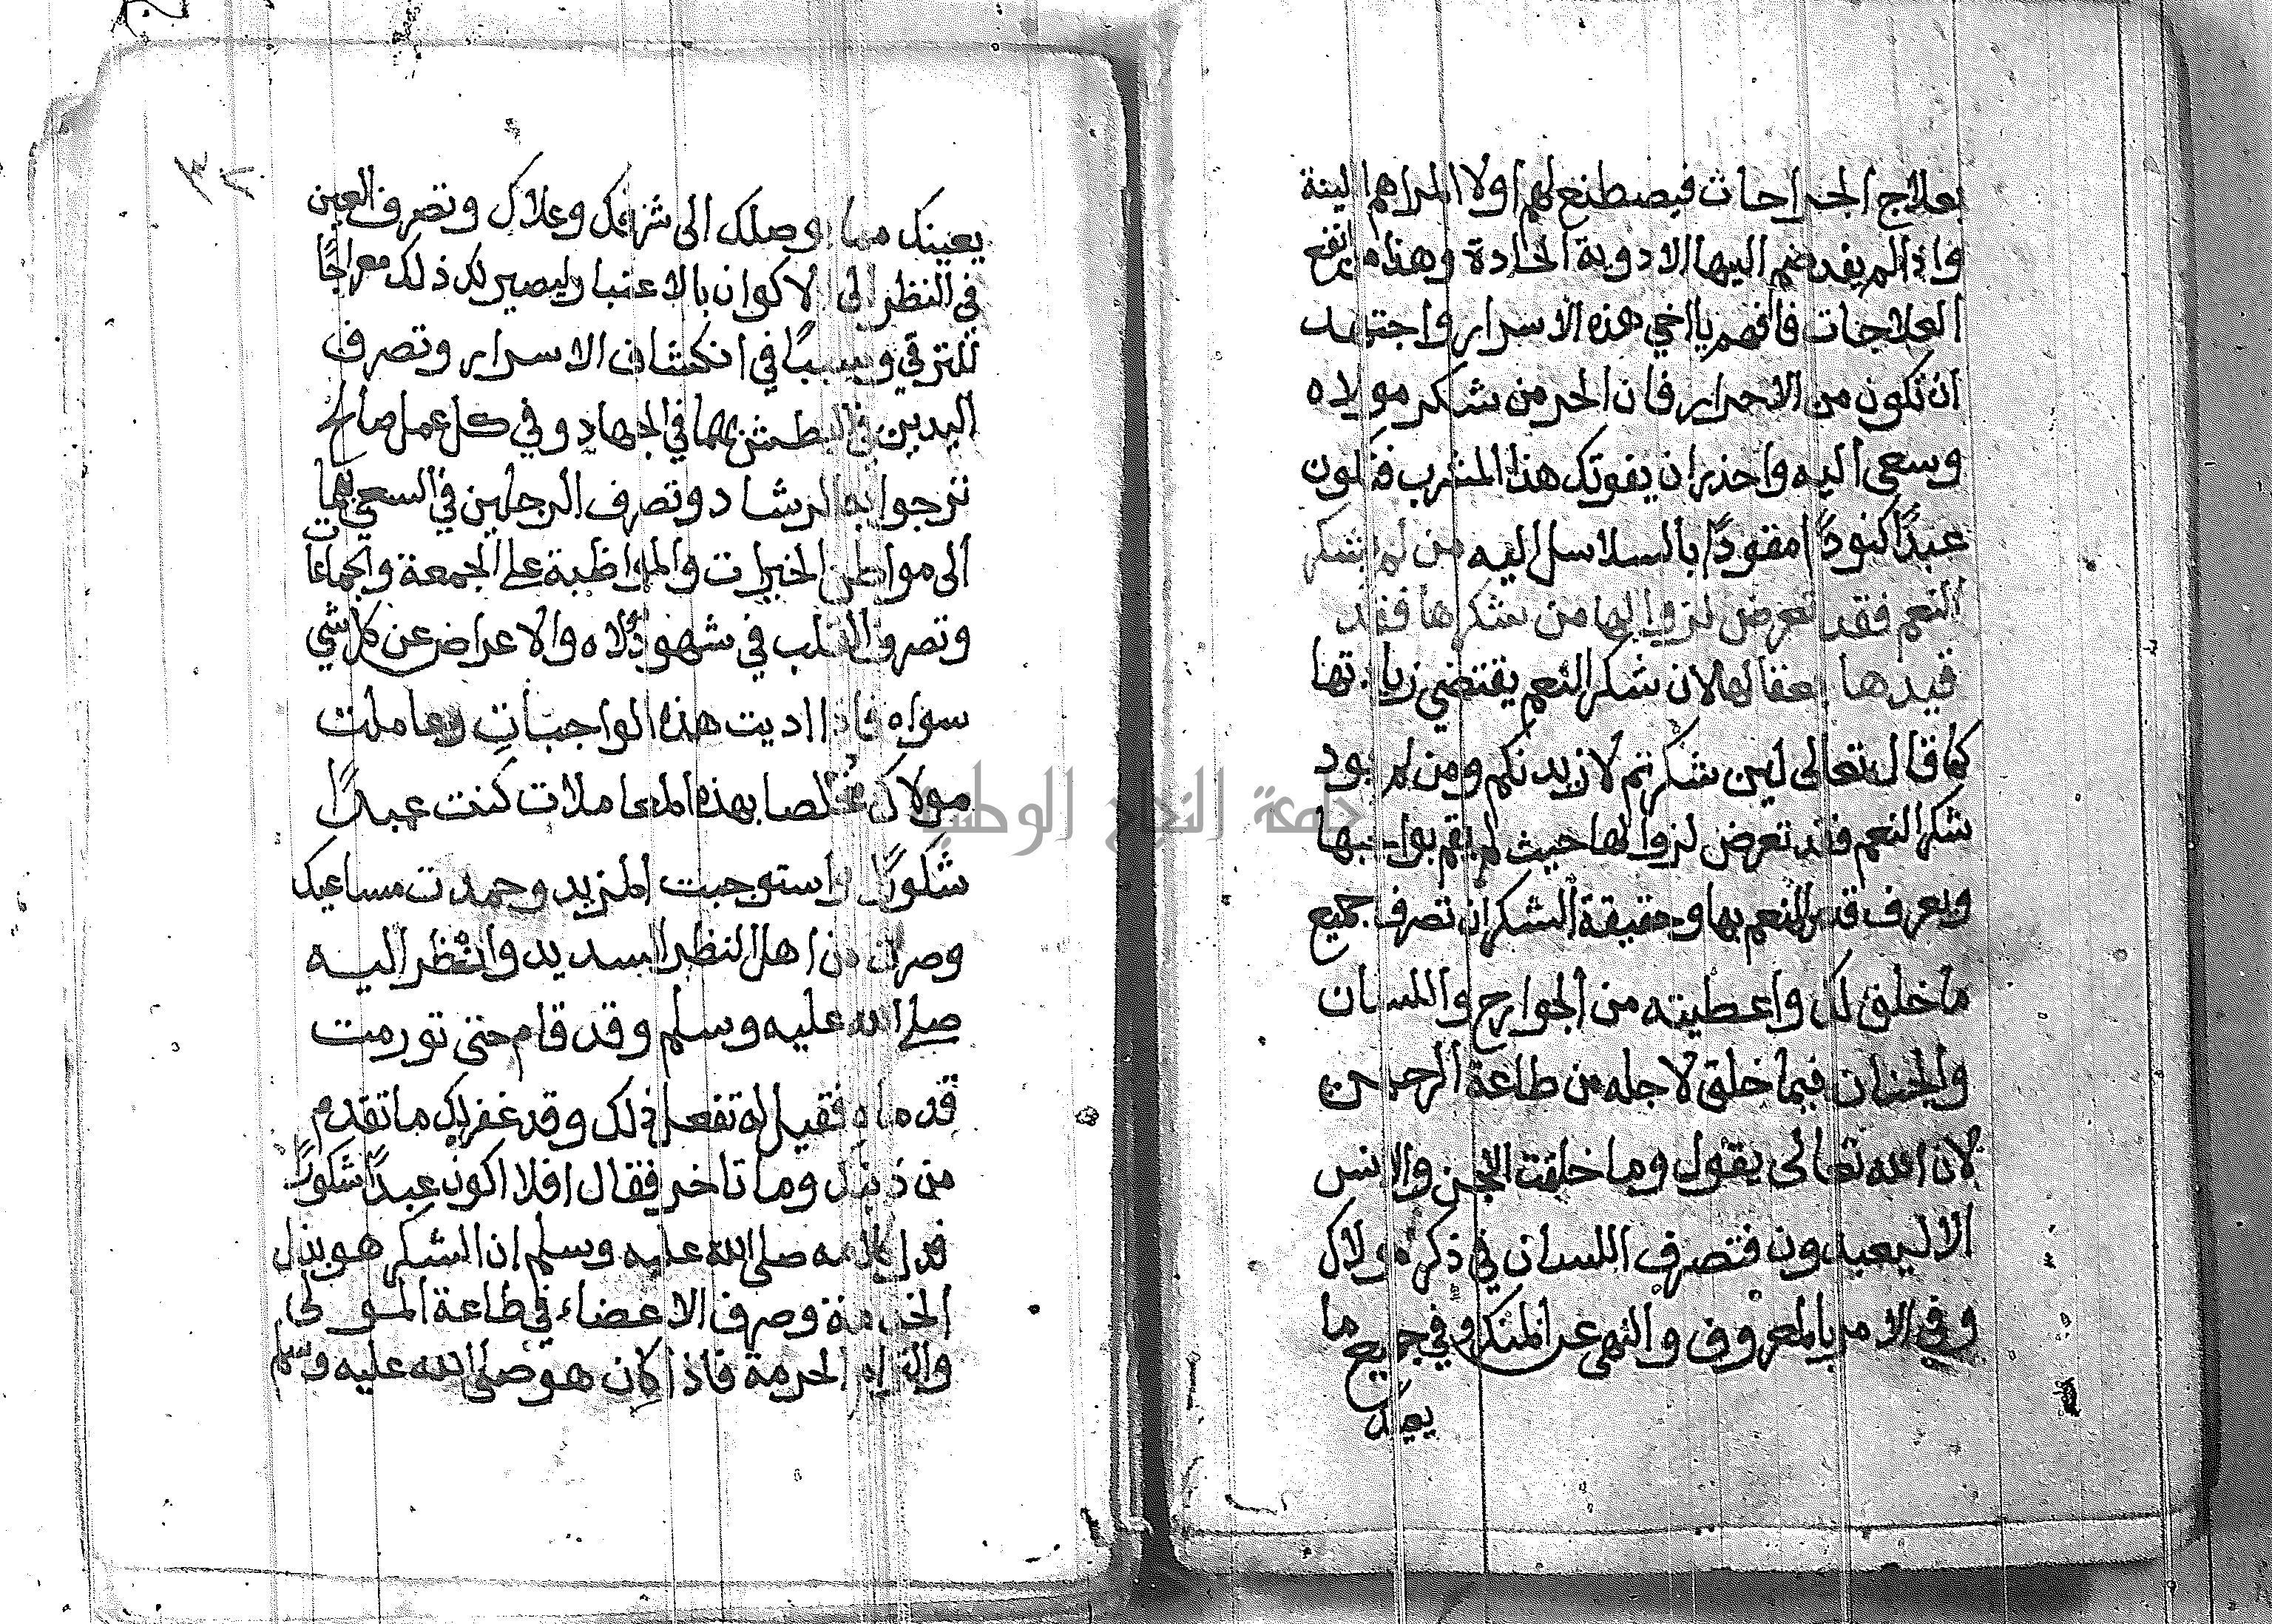 بعلاج الجراحات فيصطنع لهم اولا المراهم اللينة
واذا لم يفد ضم اليها الادوية الحادة وهذا من انفع
العلاجات فافهم يااخي هذه الاسرار واجتهد
ان تكون من الاحرار فان الحر من شكر مولاه
وسعى اليه واحذر ان يفوتك هذا المشرب فتكون
عبدًا كنودًا مقودًا بالسلاسل اليه من لم يشكر
النعم فقد تعرض لزوالها من شكرها فقد
قيدها بعقالها لان شكر النعم يقتضي زيادتها
كما قال تعالى لين شكرتم لازيدنكم ومن لم يود
شكر النعم فقد تعرض لزوالها حيث لم يقم بواجبها
ويعرف قدر المنعم بها وحقيقة الشكر ان تصرف جميع
ما خلق لك واعطيته من الجوارح واللسان
والجنان فيما خلق لاجله من طاعة الرحمن
لان الله تعالى يقول وما خلقت الجن والانس
الا ليعبدون فتصرف اللسان في ذكر مولاك
وفي الامر بالمعروف والنهي عن المنكر وفي جميع ما
يعينك
٣٢
يعينك مما يوصلك الى شرفك وعلاك وتصرف العين
في النظر الى الاكوان بالاعتبار ليصير لك ذلك معراجًا
للترقي وسببًا في انكشاف الاسرار وتصرف
اليدين في البطش بهما في الجهاد وفي كل عمل صالح
ترجوا به الرشاد وتصرف الرجلين في السعي بهما
الى مواطن الخيرات والمواظبة على الجمعة والجماعات
وتصرف القلب في شهود مولاه والاعراض عن كل شي
سواه فاذا اديت هذه الواجبات وعاملت
مولاك مخلصا بهذه المعاملات كنت عبدًا
شكورًا واستوجبت المزيد وحمدت مساعيك
وصرت من اهل النظر السديد وانظر اليه
صلى الله عليه وسلم وقد قام حتى تورمت
قدماه فقيل له تفعل ذلك وقد غفر لك ما تقدم
من ذنبك وما تاخر فقال افلا اكون عبدًا شكورًا
فدل كلامه صلى الله عليه وسلم ان الشكر هو بذل
الخدمة وصرف الاعضاء في طاعة المولى
والتزام الحرمة فاذا كان هو صلى الله عليه وسلم
جامعة النجاح الوطنية